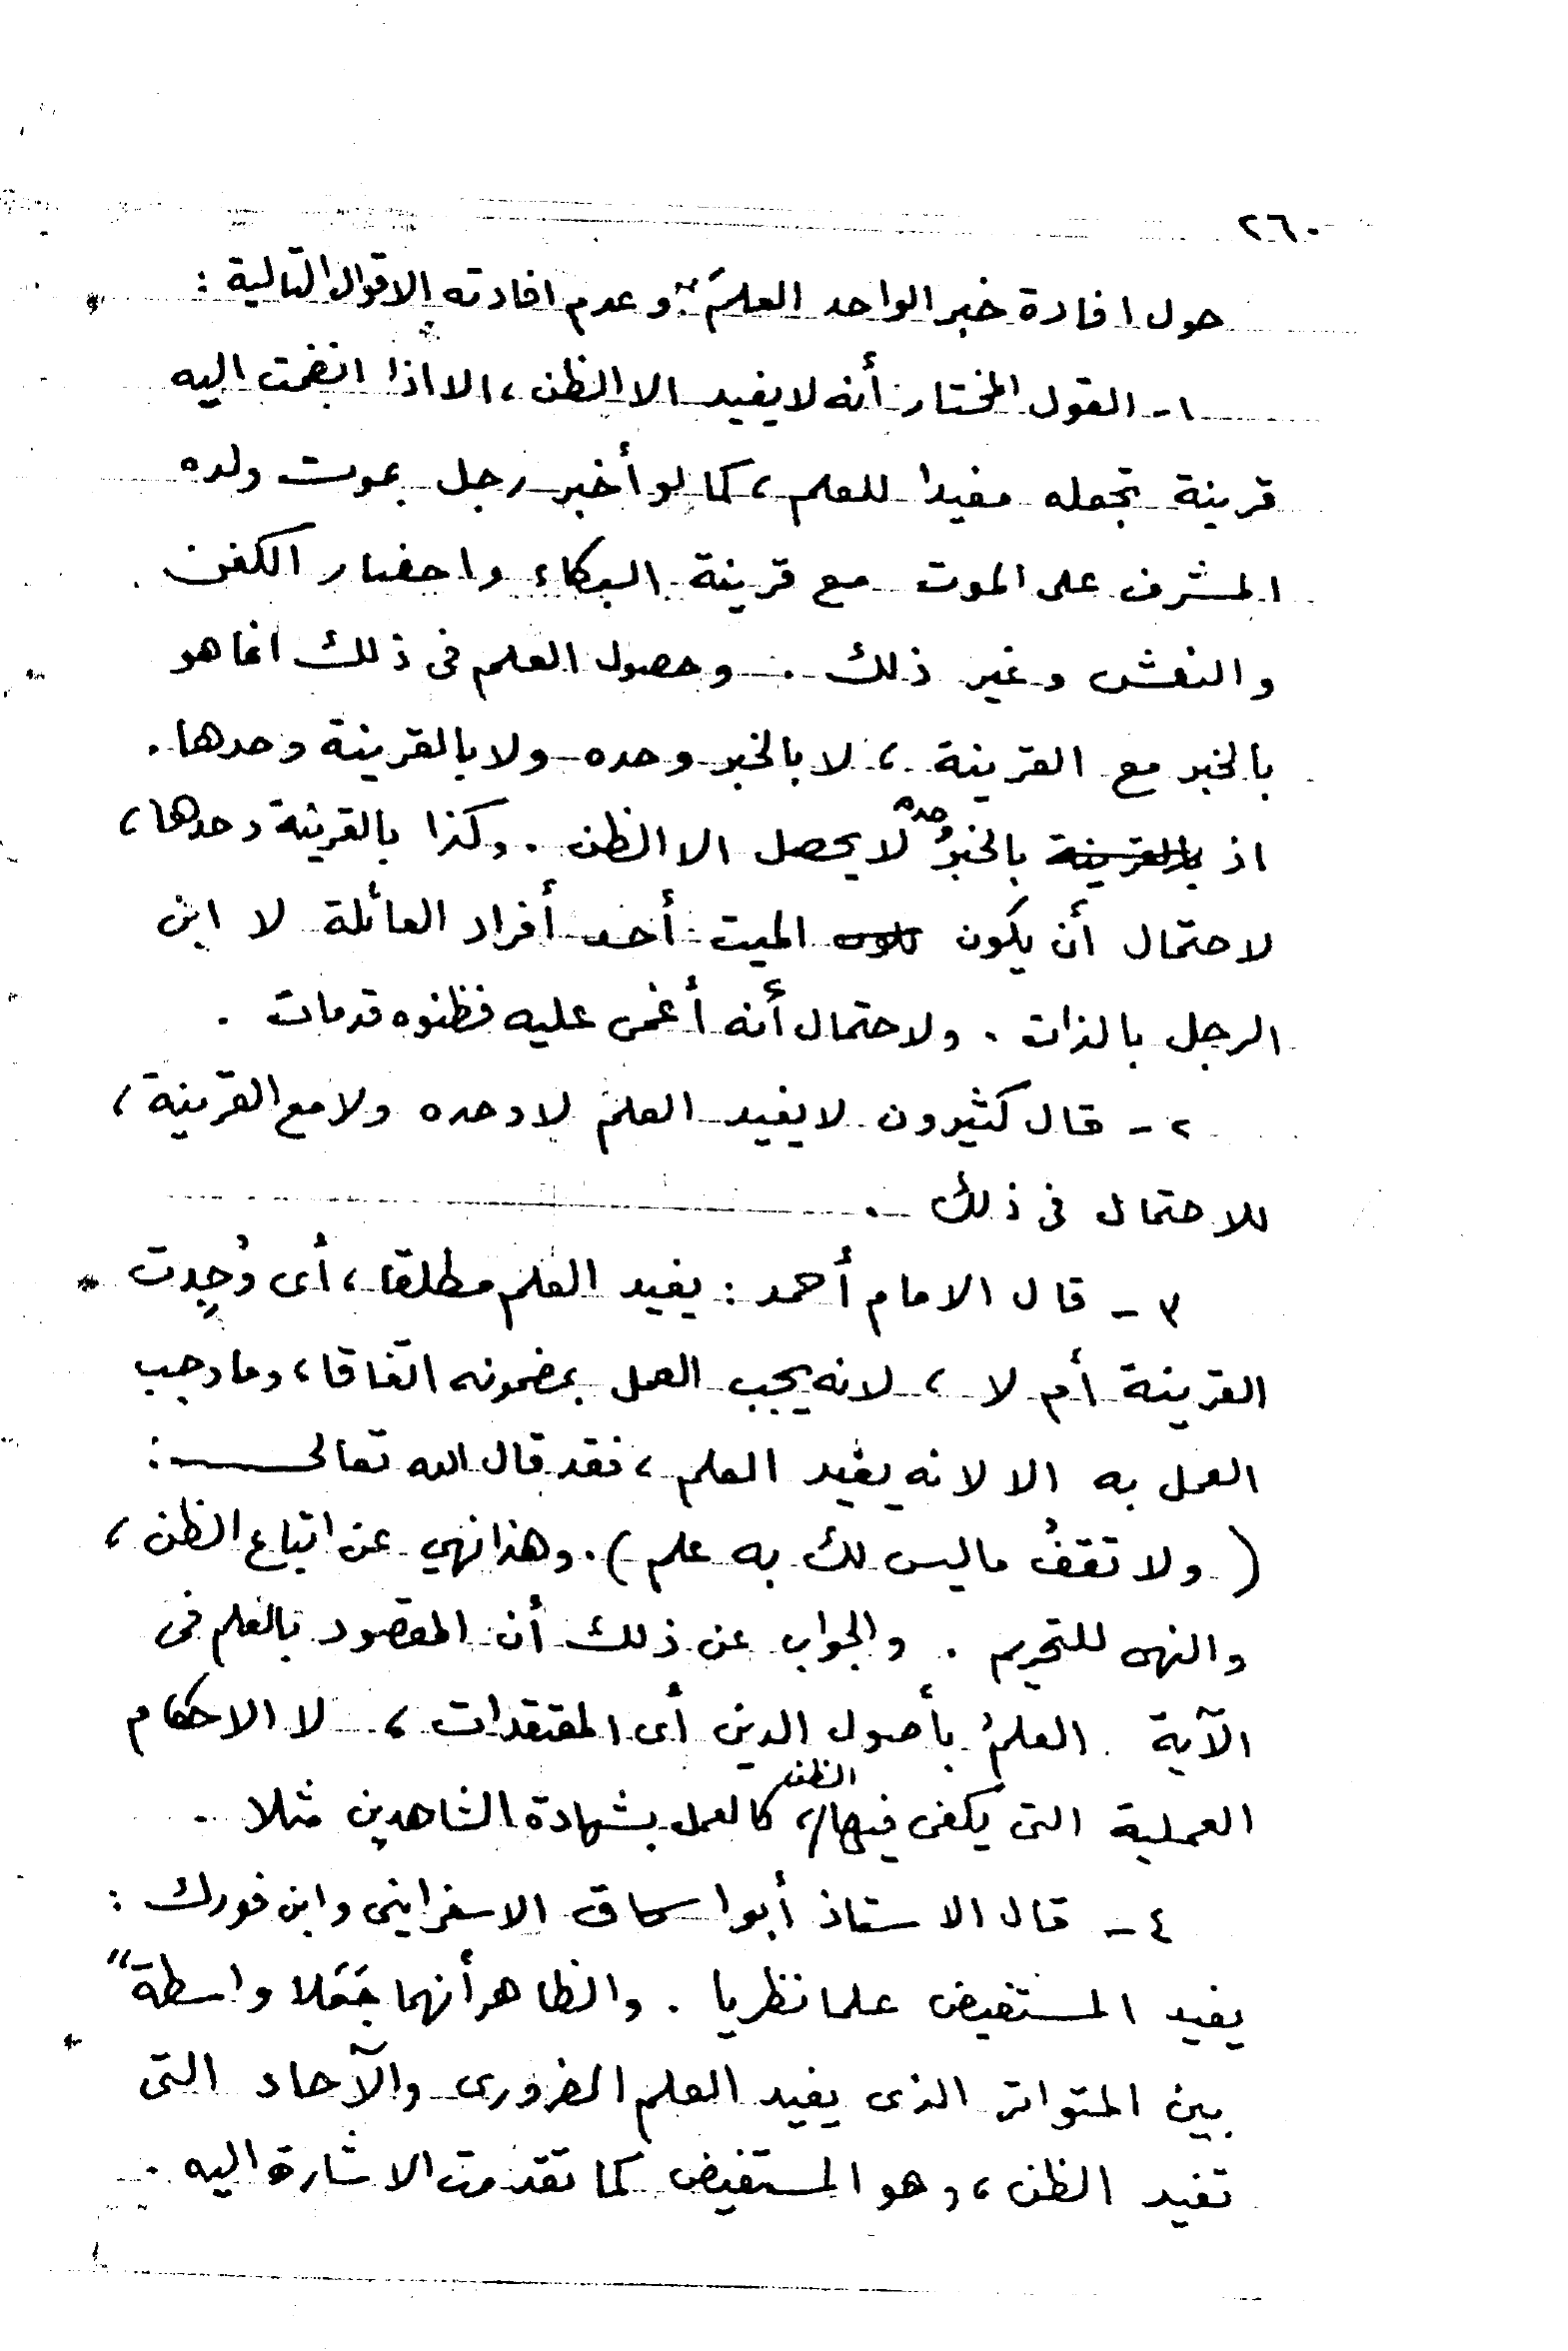 ٢٦٠
حول افادة خبر الواحد العلمَ وعدم افادته الاقوال التالية :
١- القول المختار أنه لا يفيد الا الظن ، الا اذا انضمت اليه
قرينة تجعله مفيدا للعلم ، كما لو أخبر رجل بموت ولده
المشرف على الموت مع قرينة البكاء واحضار الكفن
والنعش وغير ذلك . وحصول العلم فى ذلك انما هو
بالخبر مع القرينة ، لا بالخبر وحده ولا بالقرينة وحدها .
اذ بالقرينة بالخبر وحده لا يحصل الا الظن . وكذا بالقرينة وحدها ،
لاحتمال أن يكون الميت أحد أفراد العائلة لا ابن
الرجل بالذات . ولاحتمال أنه أغمى عليه فظنوه قد مات .
٢ - قال كثيرون لا يفيد العلم لا وحده ولا مع القرينة ،
للاحتمال فى ذلك .
٣ - قال الامام أحمد : يفيد العلم مطلقا ، أى وُجِدت
القرينة أم لا ، لانه يجب العمل بمضمونه اتفاقا ، وما وجب
العمل به الا لانه يفيد العلم ، فقد قال الله تعالى :
( ولا تقفُ ما ليس لك به علم ) . وهذا نهي عن اتباع الظن ،
والنهى للتحريم . والجواب عن ذلك أن المقصود بالعلم فى
الآية العلمُ بأصول الدين أى المعتقدات ، لا الاحكام
العملية التى يكفى فيها الظن ، كالعمل بشهادة الشاهدين مثلا .
٤ - قال الاستاذ أبو اسحاق الاسفراينى وابن فورك :
يفيد المستفيض علما نظريا . والظاهر أنهما جَعَلا واسطة"
بين المتواتر الذى يفيد العلم الضرورى والآحاد التى
تفيد الظن ، وهو المستفيض كما تقدمت الاشارة اليه .